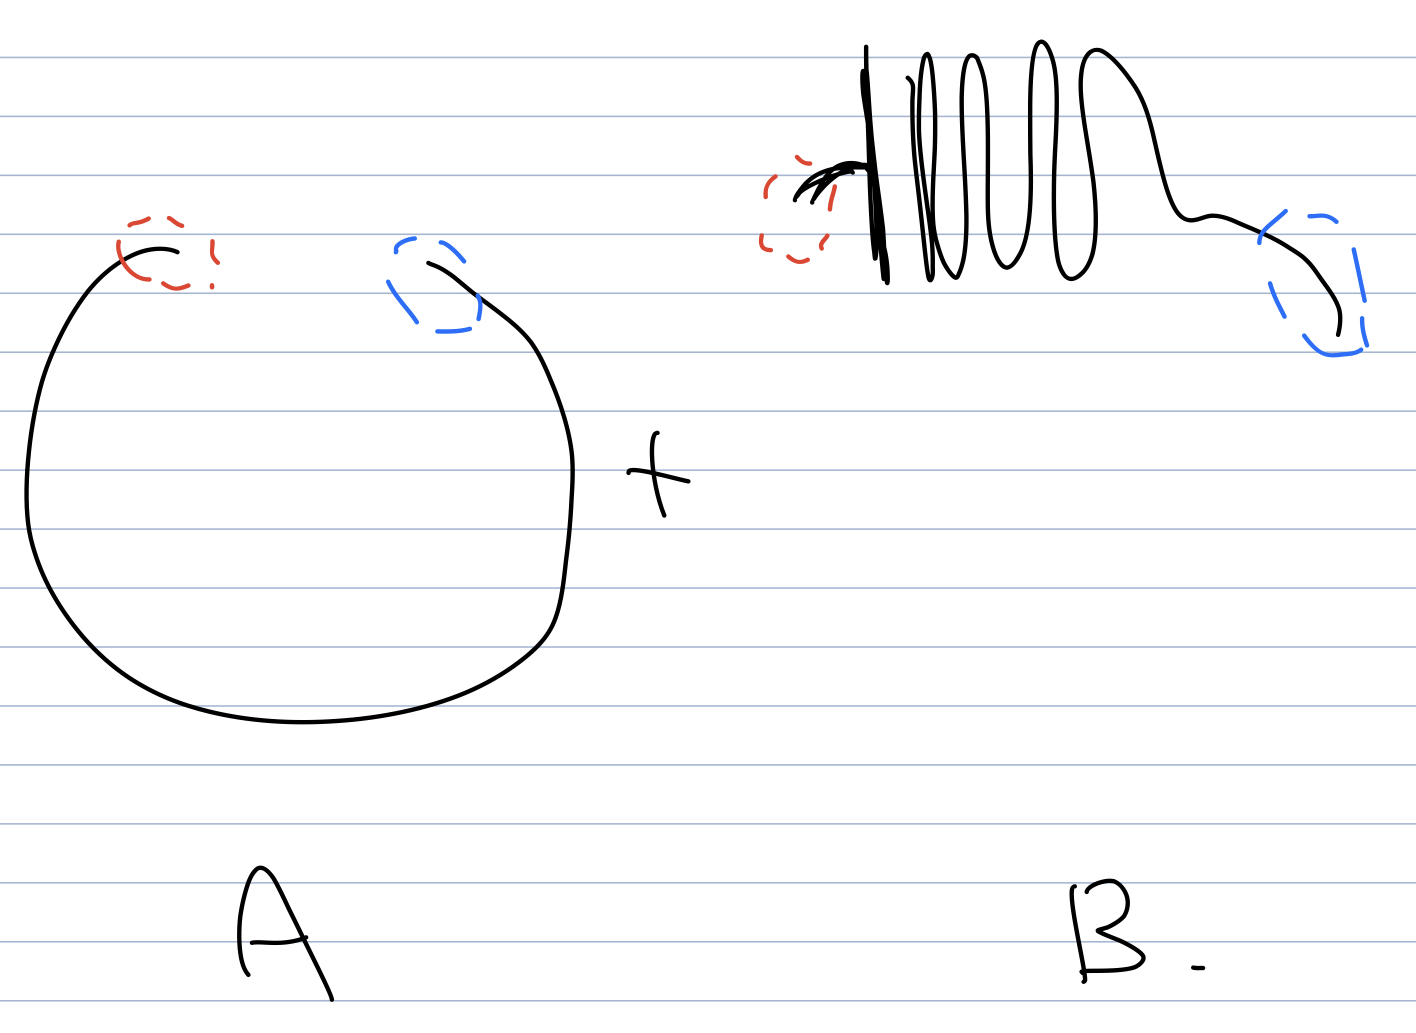 +
A B.